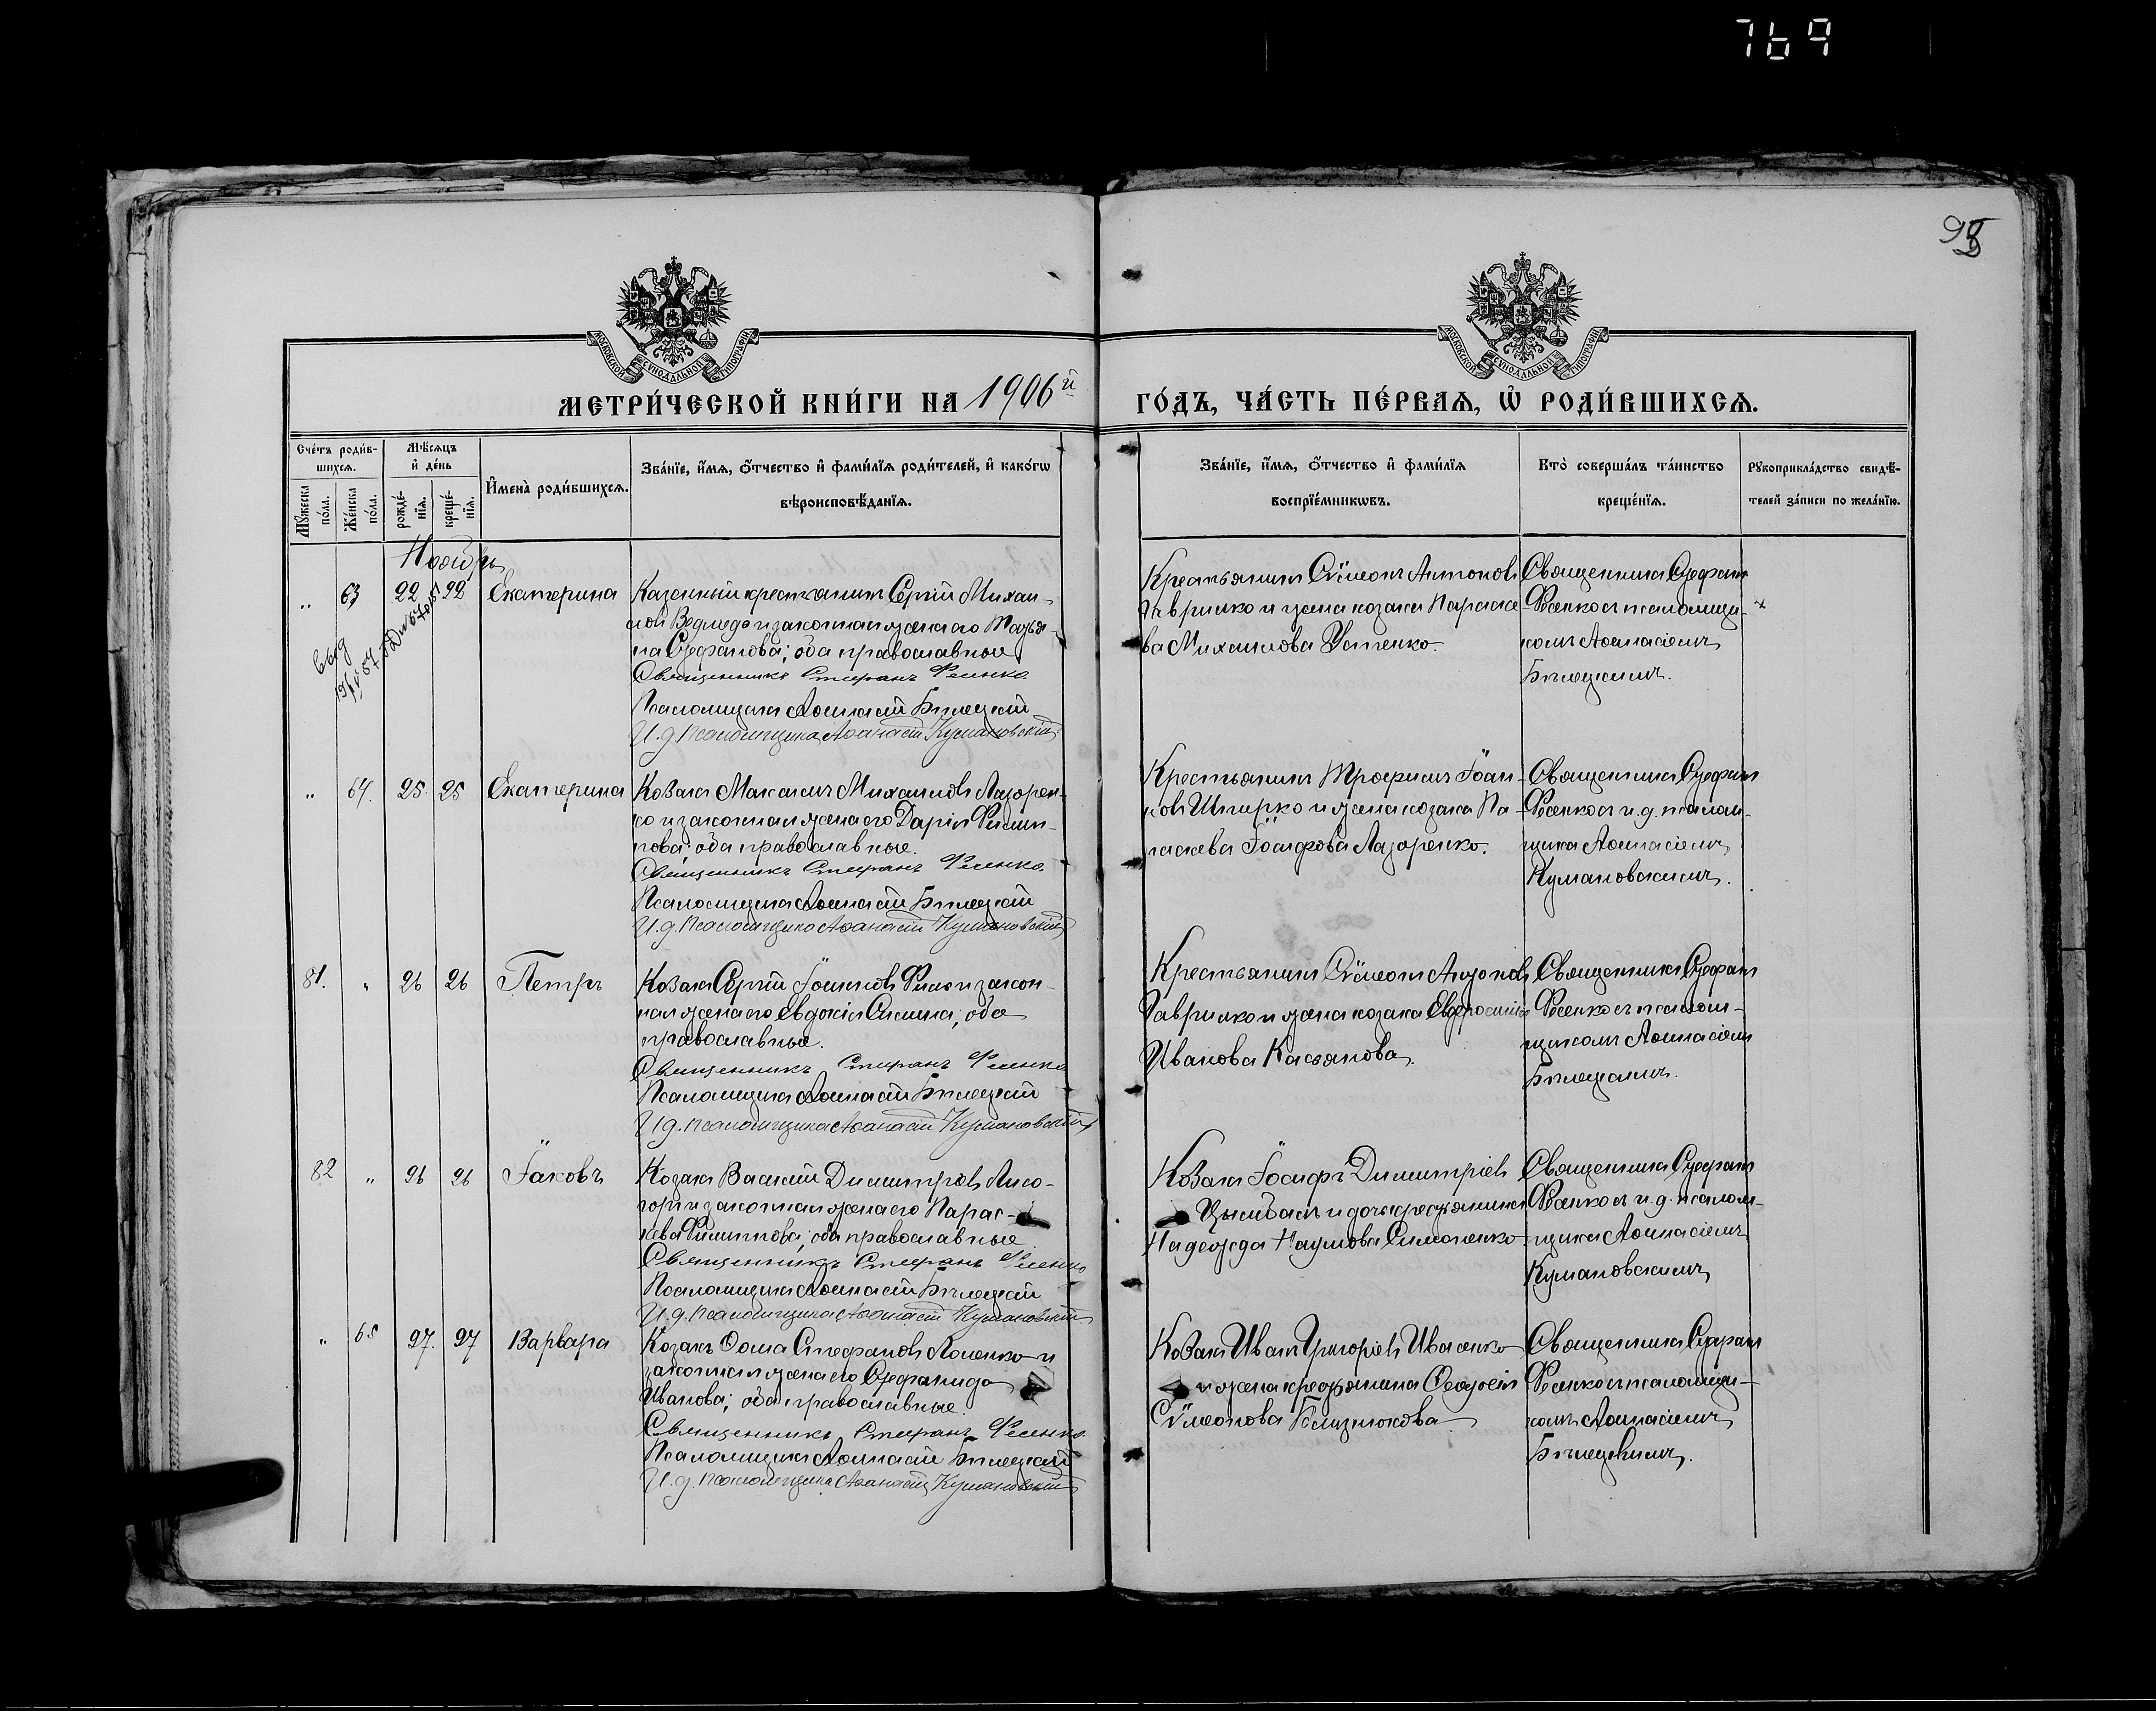 769
98
МОСКОВСКОЙ СУНОДАЛЬНОЙ ТИПОГРАФІИ
МОСКОВСКОЙ СУНОДАЛЬНОЙ ТИПОГРАФІИ
МЕТРИ́ЧЕСКОЙ КНИ́ГИ НА 1906й
ГО́ДЪ, ЧА́СТЬ ПЕ́РВАѦ, Ѡ҆ РОДИ́ВШИХСѦ.
Сче́тъ роди́в-
шихсѧ.
Мꙋ́жеска по́ла.
Же́нска по́ла.
Мѣ́сѧцъ
и҆ де́нь
рожде́-
нїѧ.
креще́-
нїѧ.
И҆мена̀ роди́вшихсѧ.
Зва́нїе, и҆́мѧ, ѻ҆́тчество и҆ фами́лїѧ роди́телей, и҆ како́гѡ
вѣроисповѣ́данїѧ.
Зва́нїе, и҆́мѧ, ѻ҆́тчество и҆ фами́лїѧ
воспрїе́мникѡвъ.
Кто̀ соверша́лъ та́инство
креще́нїѧ.
Рꙋкоприкла́дство свидѣ́-
телей за́писи по жела́нїю.
Ноябрь
„ 63 22 22 Екатерина
Казенный крестьянинъ Сергій Михаи-
ловъ Ведмедь и законная жена его Татья-
на Стефанова; оба православные
Священникъ Стефанъ Фесенко.
Псаломщикъ Аѳанасій Бѣлецкій
И. д. псаломщика Аѳанасій Кумановскій
Крестьянинъ Сѷмеонъ Антоновъ
Гаврилко и жена козака Параске-
ва Михаилова Устенко.
Священникъ Стефанъ
Фесенко съ псаломщи-
комъ Аѳанасіемъ
Бѣлецкимъ.
„ 64. 25. 25 Екатерина
Козакъ Максимъ Михаиловъ Лазорен-
ко и законная жена его Дарія Филип-
пова; оба православные.
Священникъ Стефанъ Фесенко.
Псаломщикъ Аѳанасій Бѣлецкій
И. д. псаломщика Аѳанасій Кумановскій
Крестьянинъ Трофимъ Іоан-
новъ Шпирко и жена козака Па-
раскева Іосифова Лазоренко.
Священникъ Стефанъ
Фесенко съ и. д. псалом-
щика Аѳанасіемъ
Кумановскимъ.
81. „ 26 26 Петръ
Козакъ Сергій Іоанновъ и закон-
ная жена его Евдокія; оба
православные.
Священникъ Стефанъ Фесенко
Псаломщикъ Аѳанасій Бѣлецкій
И д. псаломщика Аѳанасій Кумановскій
Крестьянинъ Сѷмеонъ Антоновъ
Гаврилко и жена козака Евфросинія
Иванова Касьянова.
Священникъ Стефанъ
Фесенко съ псалом-
щикомъ Аѳанасіемъ
Бѣлецкимъ.
82 „ 26 26 Іаковъ
Козакъ Василій Димитріевъ Лисо-
горъ и законная жена его Парас-
кева Филиппова; оба православные
Священникъ Стефанъ Фесенко
Псаломщикъ Аѳанасій Бѣлецкій
И. д. псаломщика Аѳанасій Кумановскій
Козакъ Іосифъ Димитріевъ
Цымбалъ и дочь крестьянина
Надежда Наумова Симоненко
Священникъ Стефанъ
Фесенко съ и. д. псалом-
щика Аѳанасіемъ
Кумановскимъ
„ 65 27. 27 Варвара
Козакъ Ѳома Стефановъ и
законная жена его Стефанида
Иванова; оба православные.
Священникъ Стефанъ Фесенко.
Псаломщикъ Аѳанасій Бѣлецкій
И. д. псаломщика Аѳанасій Кумановскій
Козакъ Иванъ Григоріевъ Ивасенко
и жена крестьянина Ѳеодосія
Сѷмеонова Близнюкова
Священникъ Стефанъ
Фесенко съ псаломщи-
комъ Аѳанасіемъ
Бѣлецкимъ.